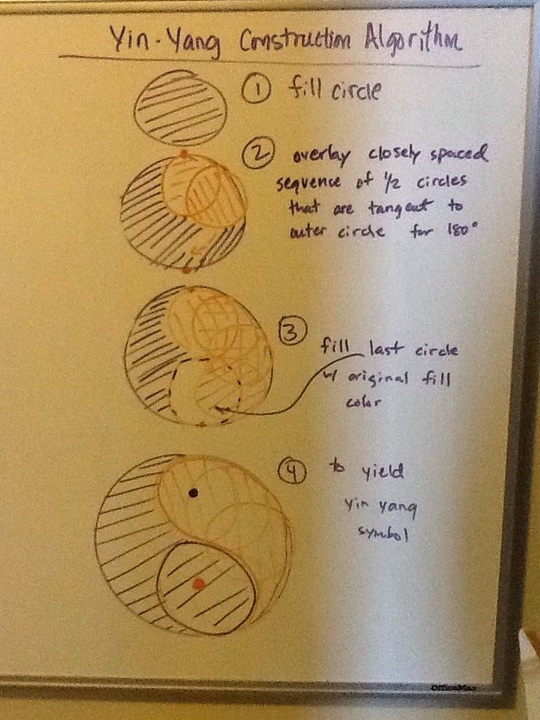 Yin-Yang Construction Algorithm
① fill circle
② overlay closely spaced
sequence of ½ circles
that are tangent to
outer circle for 180°
③
fill last circle
w/ original fill
color
④ to yield
yin yang
symbol
OfficeMax